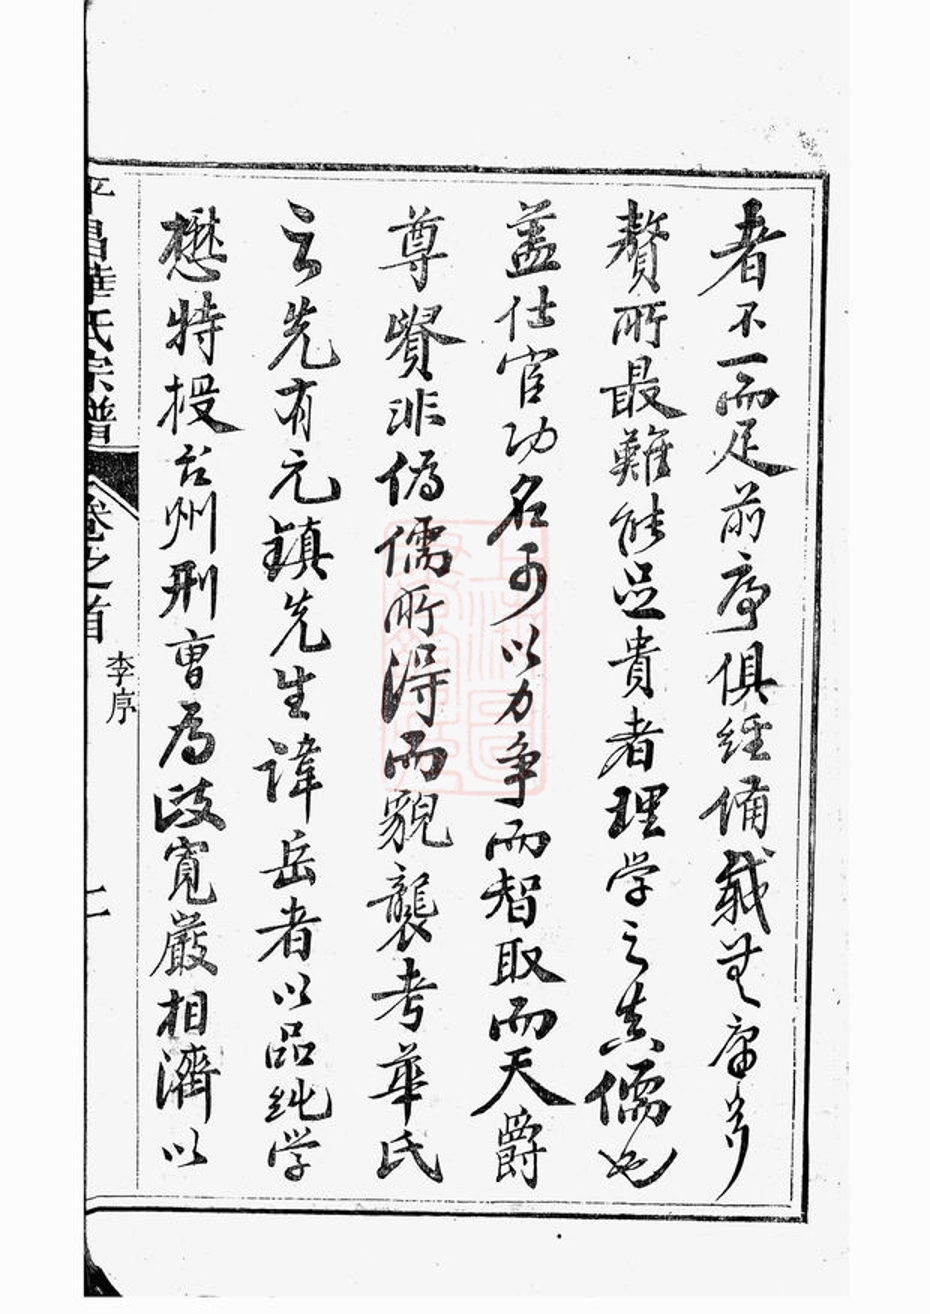 者不一而足前序俱經備載無庸多
贅所最難能足貴者理學之真儒也
蓋仕宦功名可以力爭而智取而天爵
尊賢非偽儒所得而貌襲考華氏
之先有元鎮先生諱岳者以品純學
懋特授台州刑曹為政寬嚴相濟以
平昌華氏宗譜
卷之首
李序
二